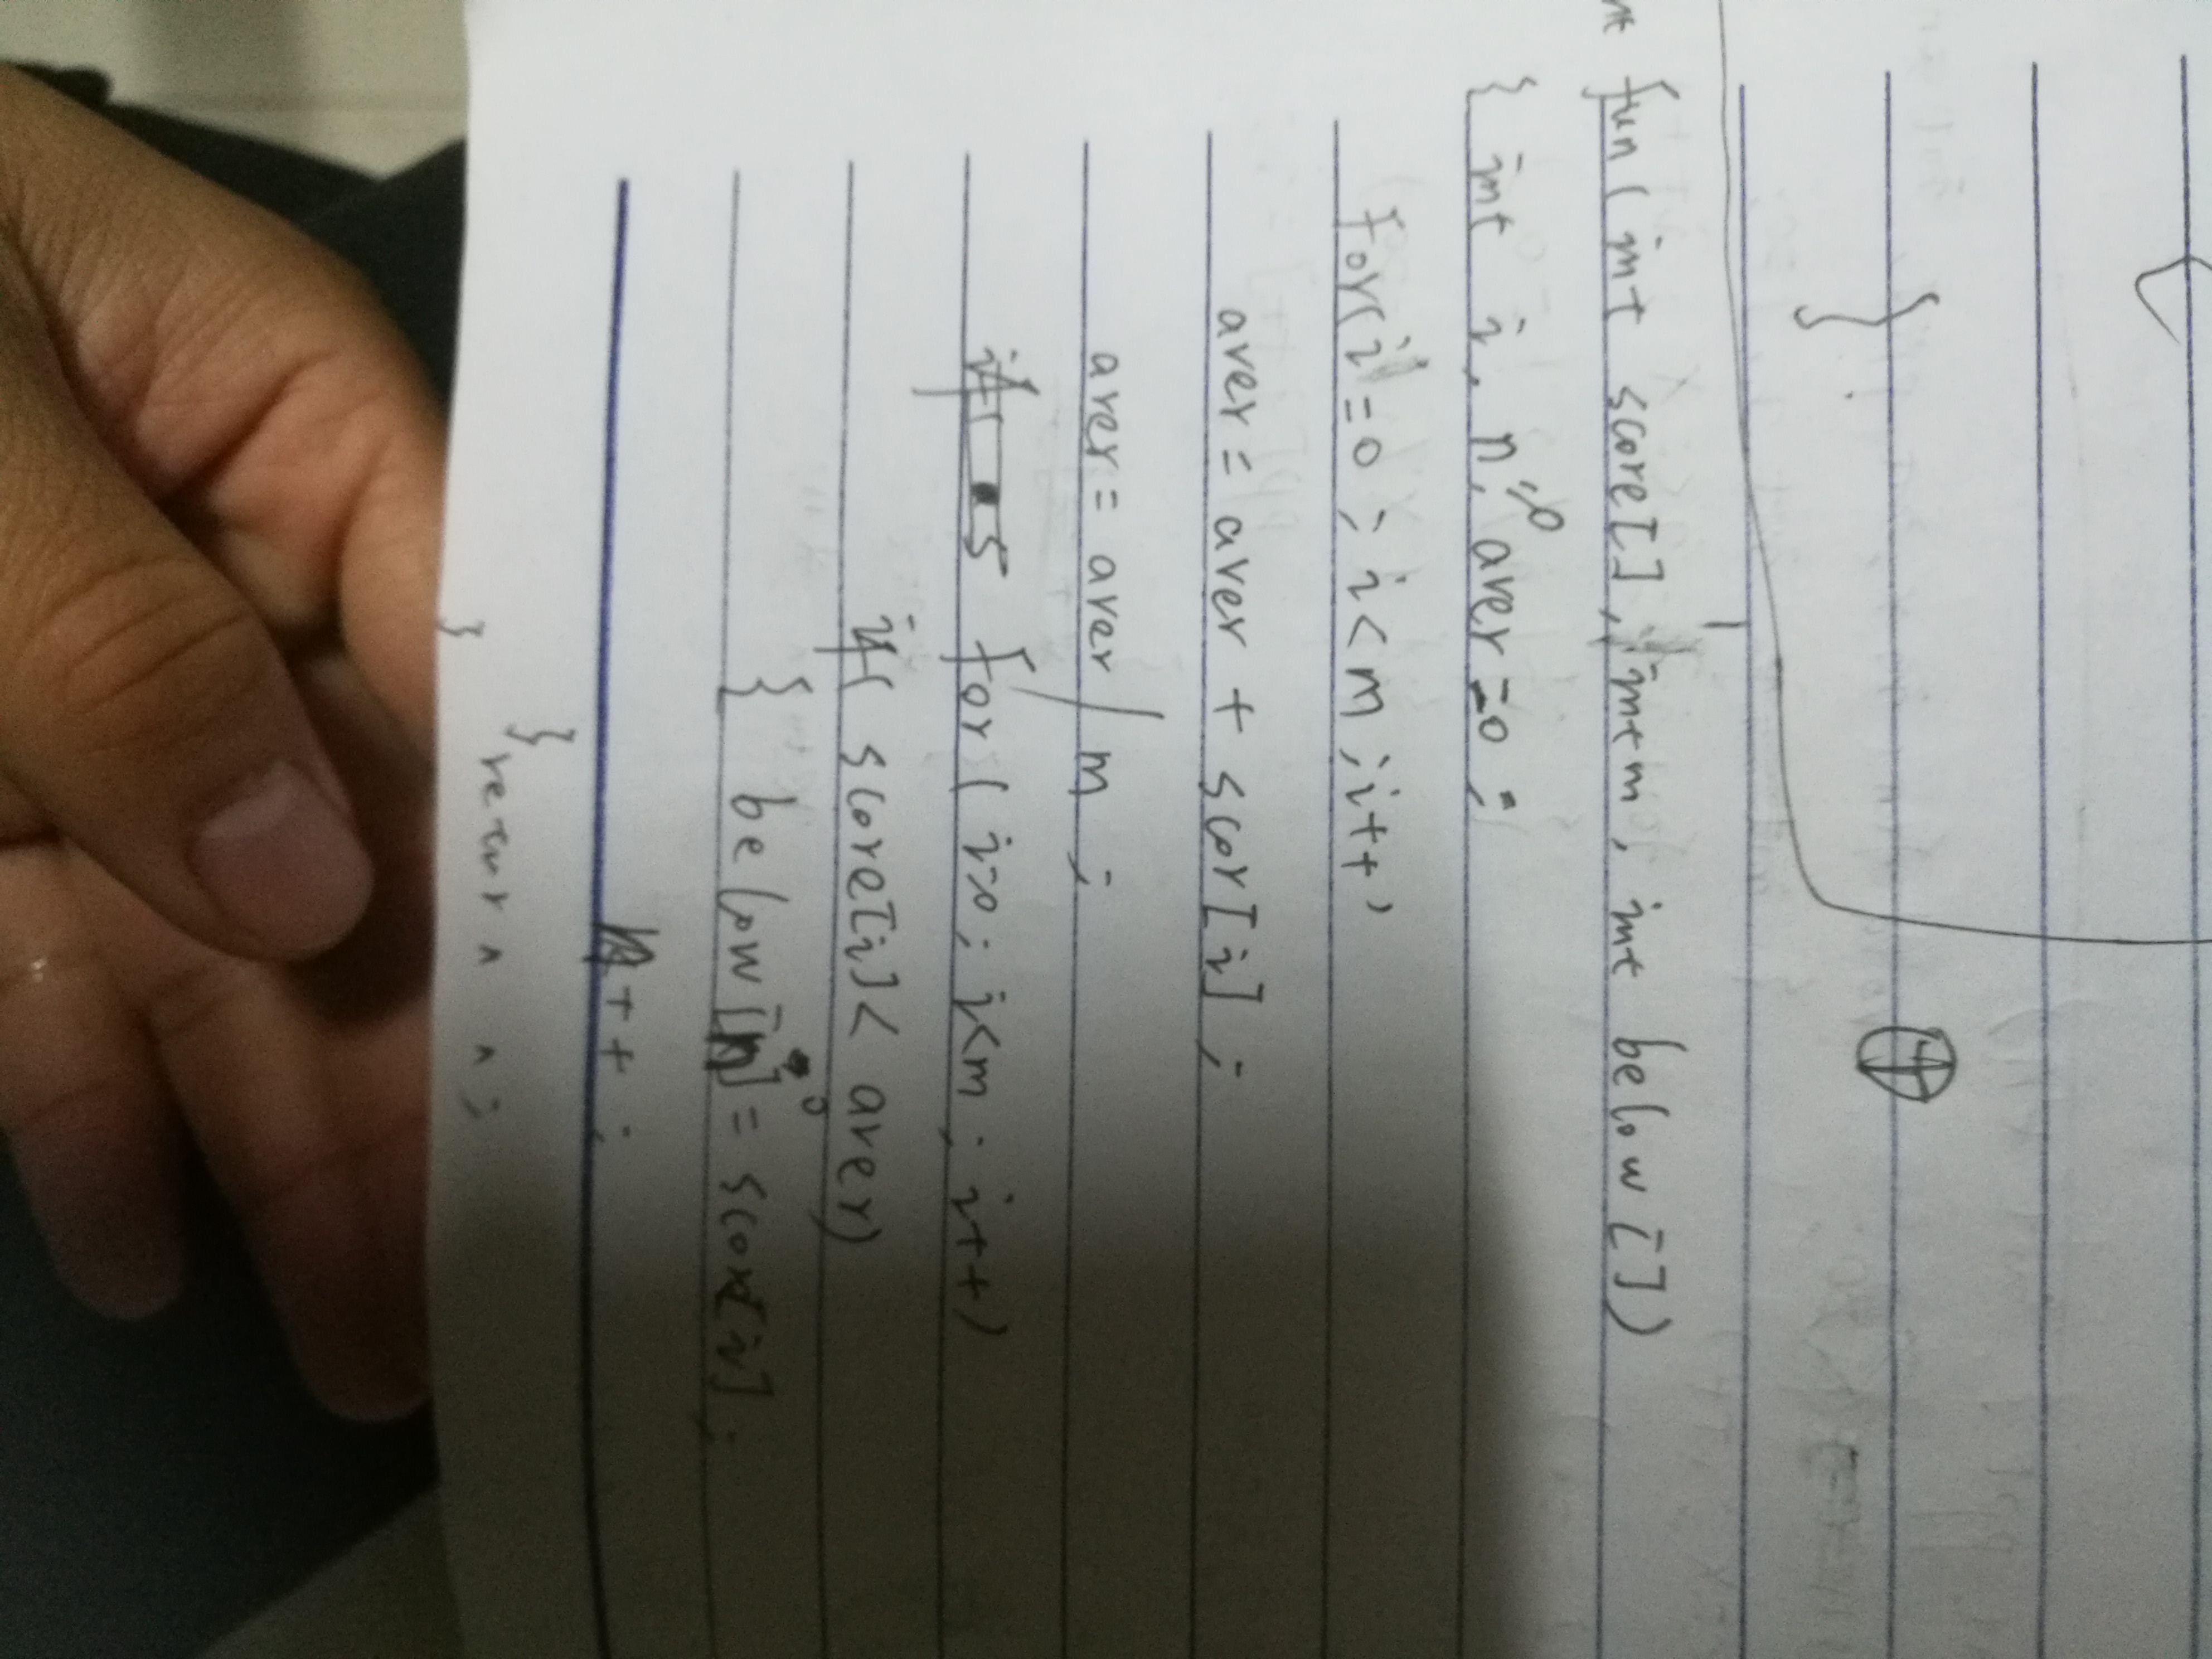 }
④
int fun(int score[], int m, int below[])
{ int i, n=0, aver=0;
for(i=0; i<m; i++)
aver = aver + scor[i];
aver = aver / m;
for(i=0; i<m; i++)
if( score[i] < aver)
{ below[n] = score[i];
n++;
}
return n;
}